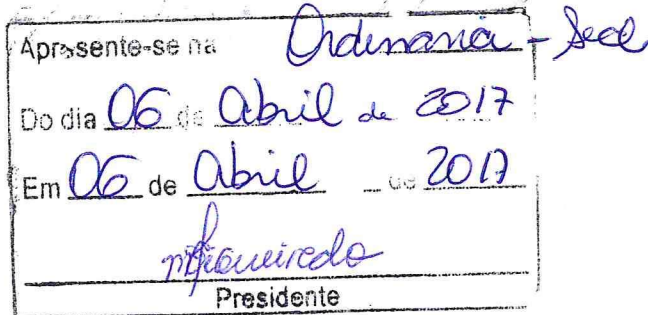 Apresente-se na Ordinaria - Sede
Do dia 06 de Abril de 2017
Em 06 de Abril de 2017
Presidente